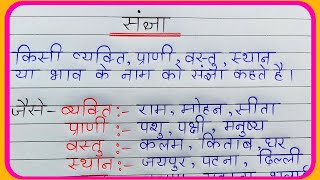 संज्ञा
किसी व्यक्ति, प्राणी, वस्तु, स्थान
या भाव के नाम को संज्ञा कहते है।
जैसे- व्यक्ति:- राम, मोहन, सीता
प्राणी:- पशु, पक्षी, मनुष्य
वस्तु:- कलम, किताब, घर
स्थान:- जयपुर, पटना, दिल्ली